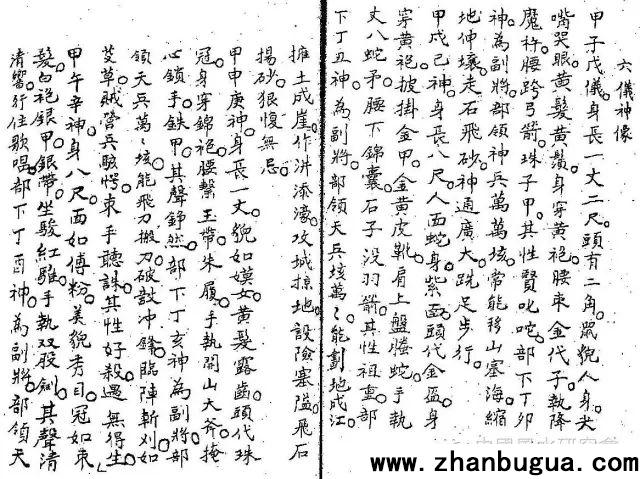 六儀神像
甲子戊儀身長一丈二尺。頭有二角。鼠貌人身。尖
嘴哭眼。黄髮黄鬚。身穿黄袍。腰束金代子。執降
魔杵。腰跨弓箭。珠子甲。其性賢叱咤。部下丁卯
神為副將。部領神兵萬萬垓。常能移山塞海。縮
地伸壤。走石飛砂。神通廣大。跣足步行。
甲戌己神。身長八尺。人面蛇身。紫面。頭代金盔。身
穿黄袍。披掛金甲。金黄皮靴。肩上盤螣蛇。手執
丈八蛇矛。腰下錦囊。石子没羽箭。其性祖重。部
下丁丑神為副將。部領天兵垓萬〻。能劃地成江。
擁土成崖。作洪添濠。攻城掠地。設險塞隘。飛石
揚砂。狠愎無忌。
甲申庚神。身長一丈。貌如嫫女。黄髮露齒。頭代珠
冠。身穿錦袍。腰繫玉帶。朱履。手執開山大斧。掩
心鎖手鉄甲。其聲錚然。部下丁亥神為副將。部
領天兵萬〻垓。能飛刀搬刀。破敵冲鋒。臨陣斬刈如
芟草。賊營兵駭愕。束手聽誅。其性好殺。遇無得生。
甲午辛神身八尺。面如傅粉。美貌秀目。冠如束
髮。白袍銀甲銀帶。坐駿紅騅。手執双股劍。其聲清
清響。行住歌唱。部下丁酉神。為副將。部領天
www.zhanbugua.com